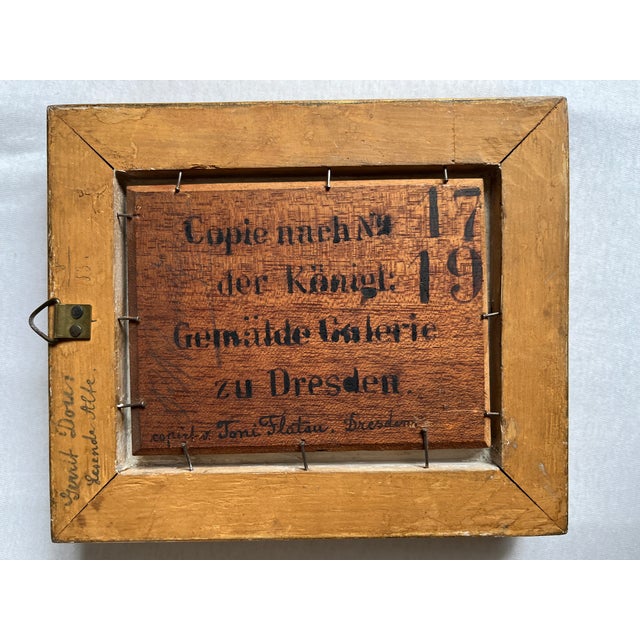 Copie nach No 17
der Königl: 19
Gemälde Galerie
zu Dresden.
copirt v. Toni Flatau. Dresden.
Gerrit Dou:
Lesende Alte.